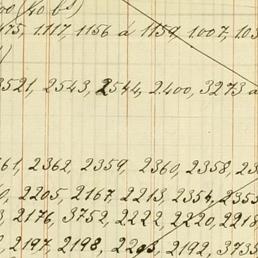 75, 1117, 1156 à 1159, 1007, 103
3521, 2543, 2544, 2400, 3273 a
361, 2362, 2359, 2360, 2358, 23
2205, 2167, 2213, 2354, 2355
2176, 3752, 2222, 2220, 2218
2197, 2198, 2192, 3735